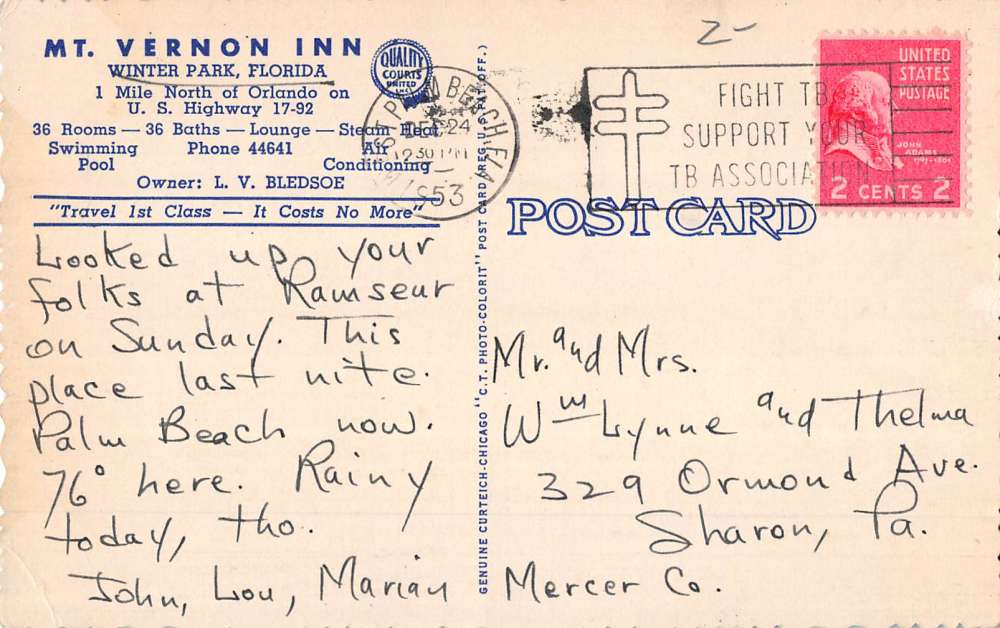 MT. VERNON INN
WINTER PARK, FLORIDA
1 Mile North of Orlando on
U. S. Highway 17-92
36 Rooms — 36 Baths — Lounge — Steam Heat
Swimming Pool
Phone 44641
Air Conditioning
Owner: L. V. BLEDSOE
"Travel 1st Class — It Costs No More"
QUALITY
COURTS
UNITED
PALM BEACH, FLA
DEC 24
12 30 PM
1953
2-
FIGHT TB
SUPPORT YOUR
TB ASSOCIATION
UNITED
STATES
POSTAGE
JOHN
ADAMS
2 CENTS 2
POST CARD
GENUINE CURTEICH-CHICAGO "C.T. PHOTO-COLORIT" POST CARD (REG. U.S. PAT. OFF.)
Looked up your
folks at Ramseur
on Sunday. This
place last nite.
Palm Beach now.
76° here. Rainy
today, tho.
John, Lou, Marian
Mr. and Mrs.
Wm Lynne and Thelma
329 Ormond Ave.
Sharon, Pa.
Mercer Co.